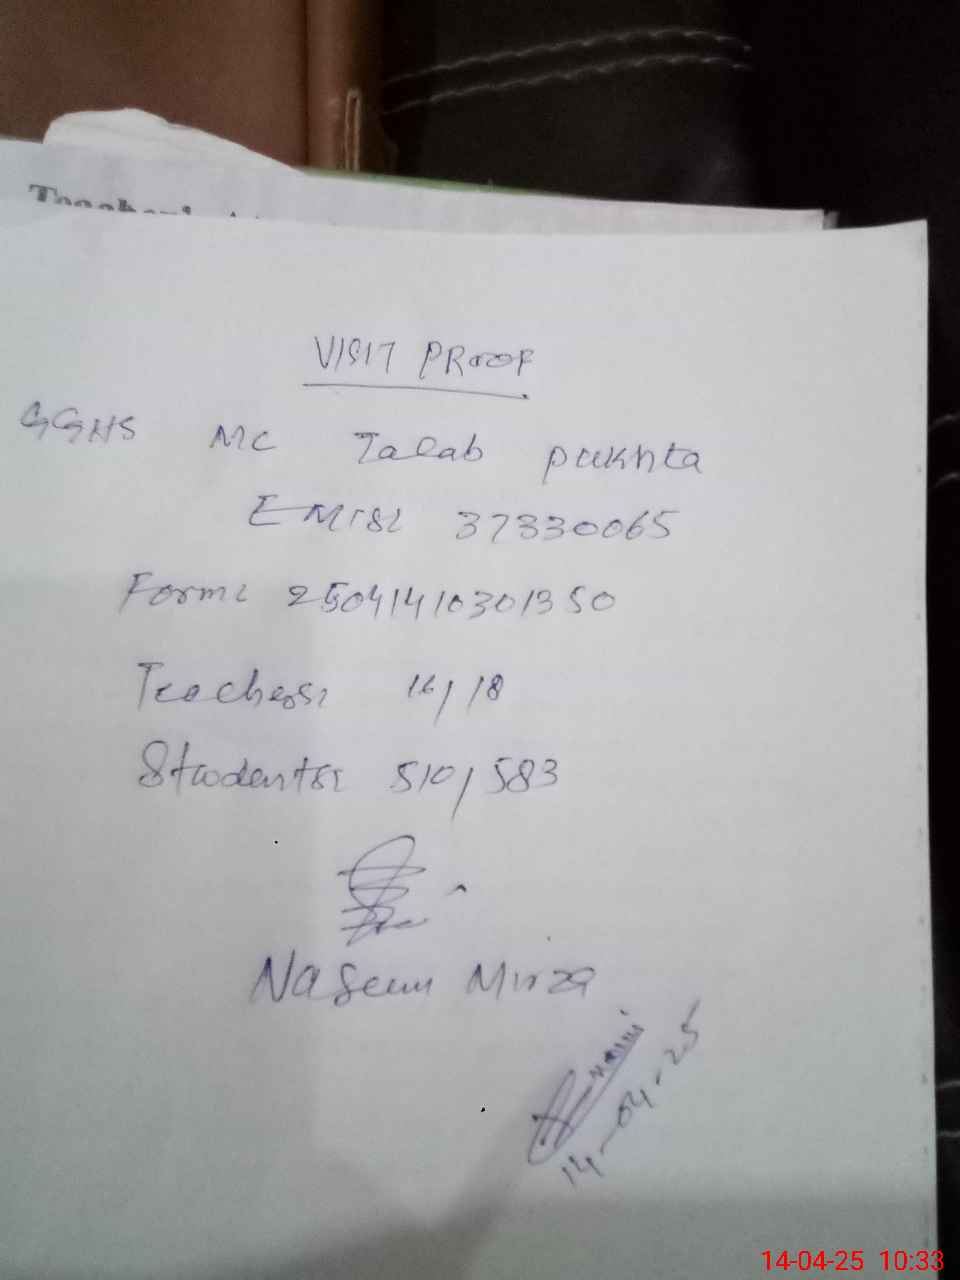 VISIT PROOF
GGHS MC Talab pukhta
EMIS: 37330065
Form: 25041410301350
Teachers: 16/18
Students: 510/583
Naseem Mirza
14-04-25
14-04-25 10:33